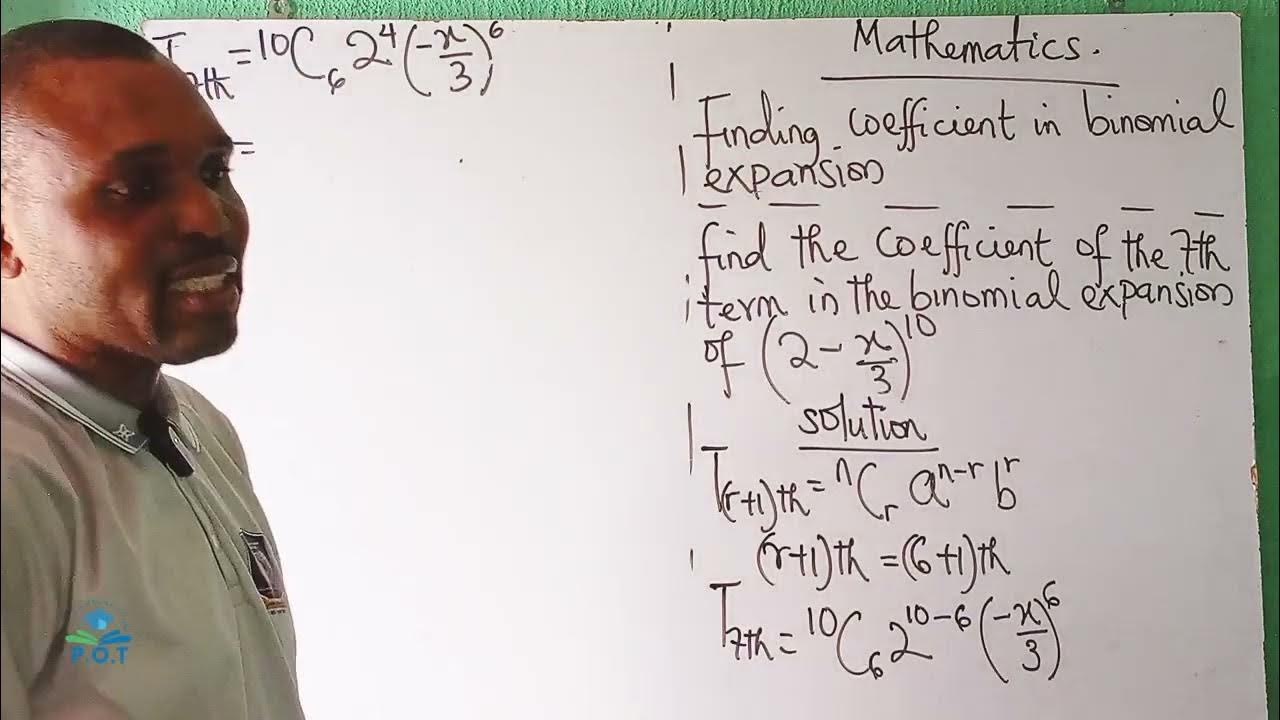 T7th = ¹⁰C₆ 2⁴ (-x/3)⁶
=
Mathematics.
Finding coefficient in binomial
expansion
find the coefficient of the 7th
term in the binomial expansion
of (2 - x/3)¹⁰
solution
T(r+1)th = ⁿCᵣ aⁿ⁻ʳ bʳ
(r+1)th = (6+1)th
T7th = ¹⁰C₆ 2¹⁰⁻⁶ (-x/3)⁶
P.O.T